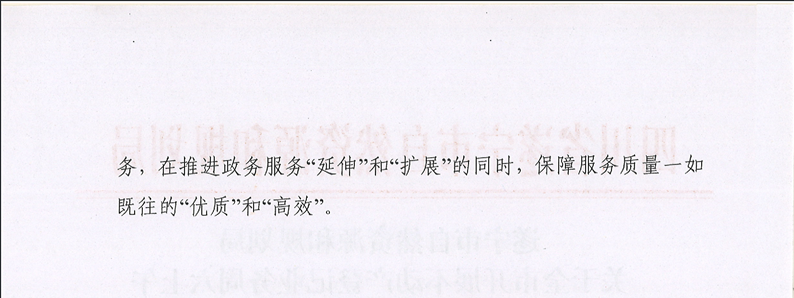 务，在推进政务服务“延伸”和“扩展”的同时，保障服务质量一如
既往的“优质”和“高效”。